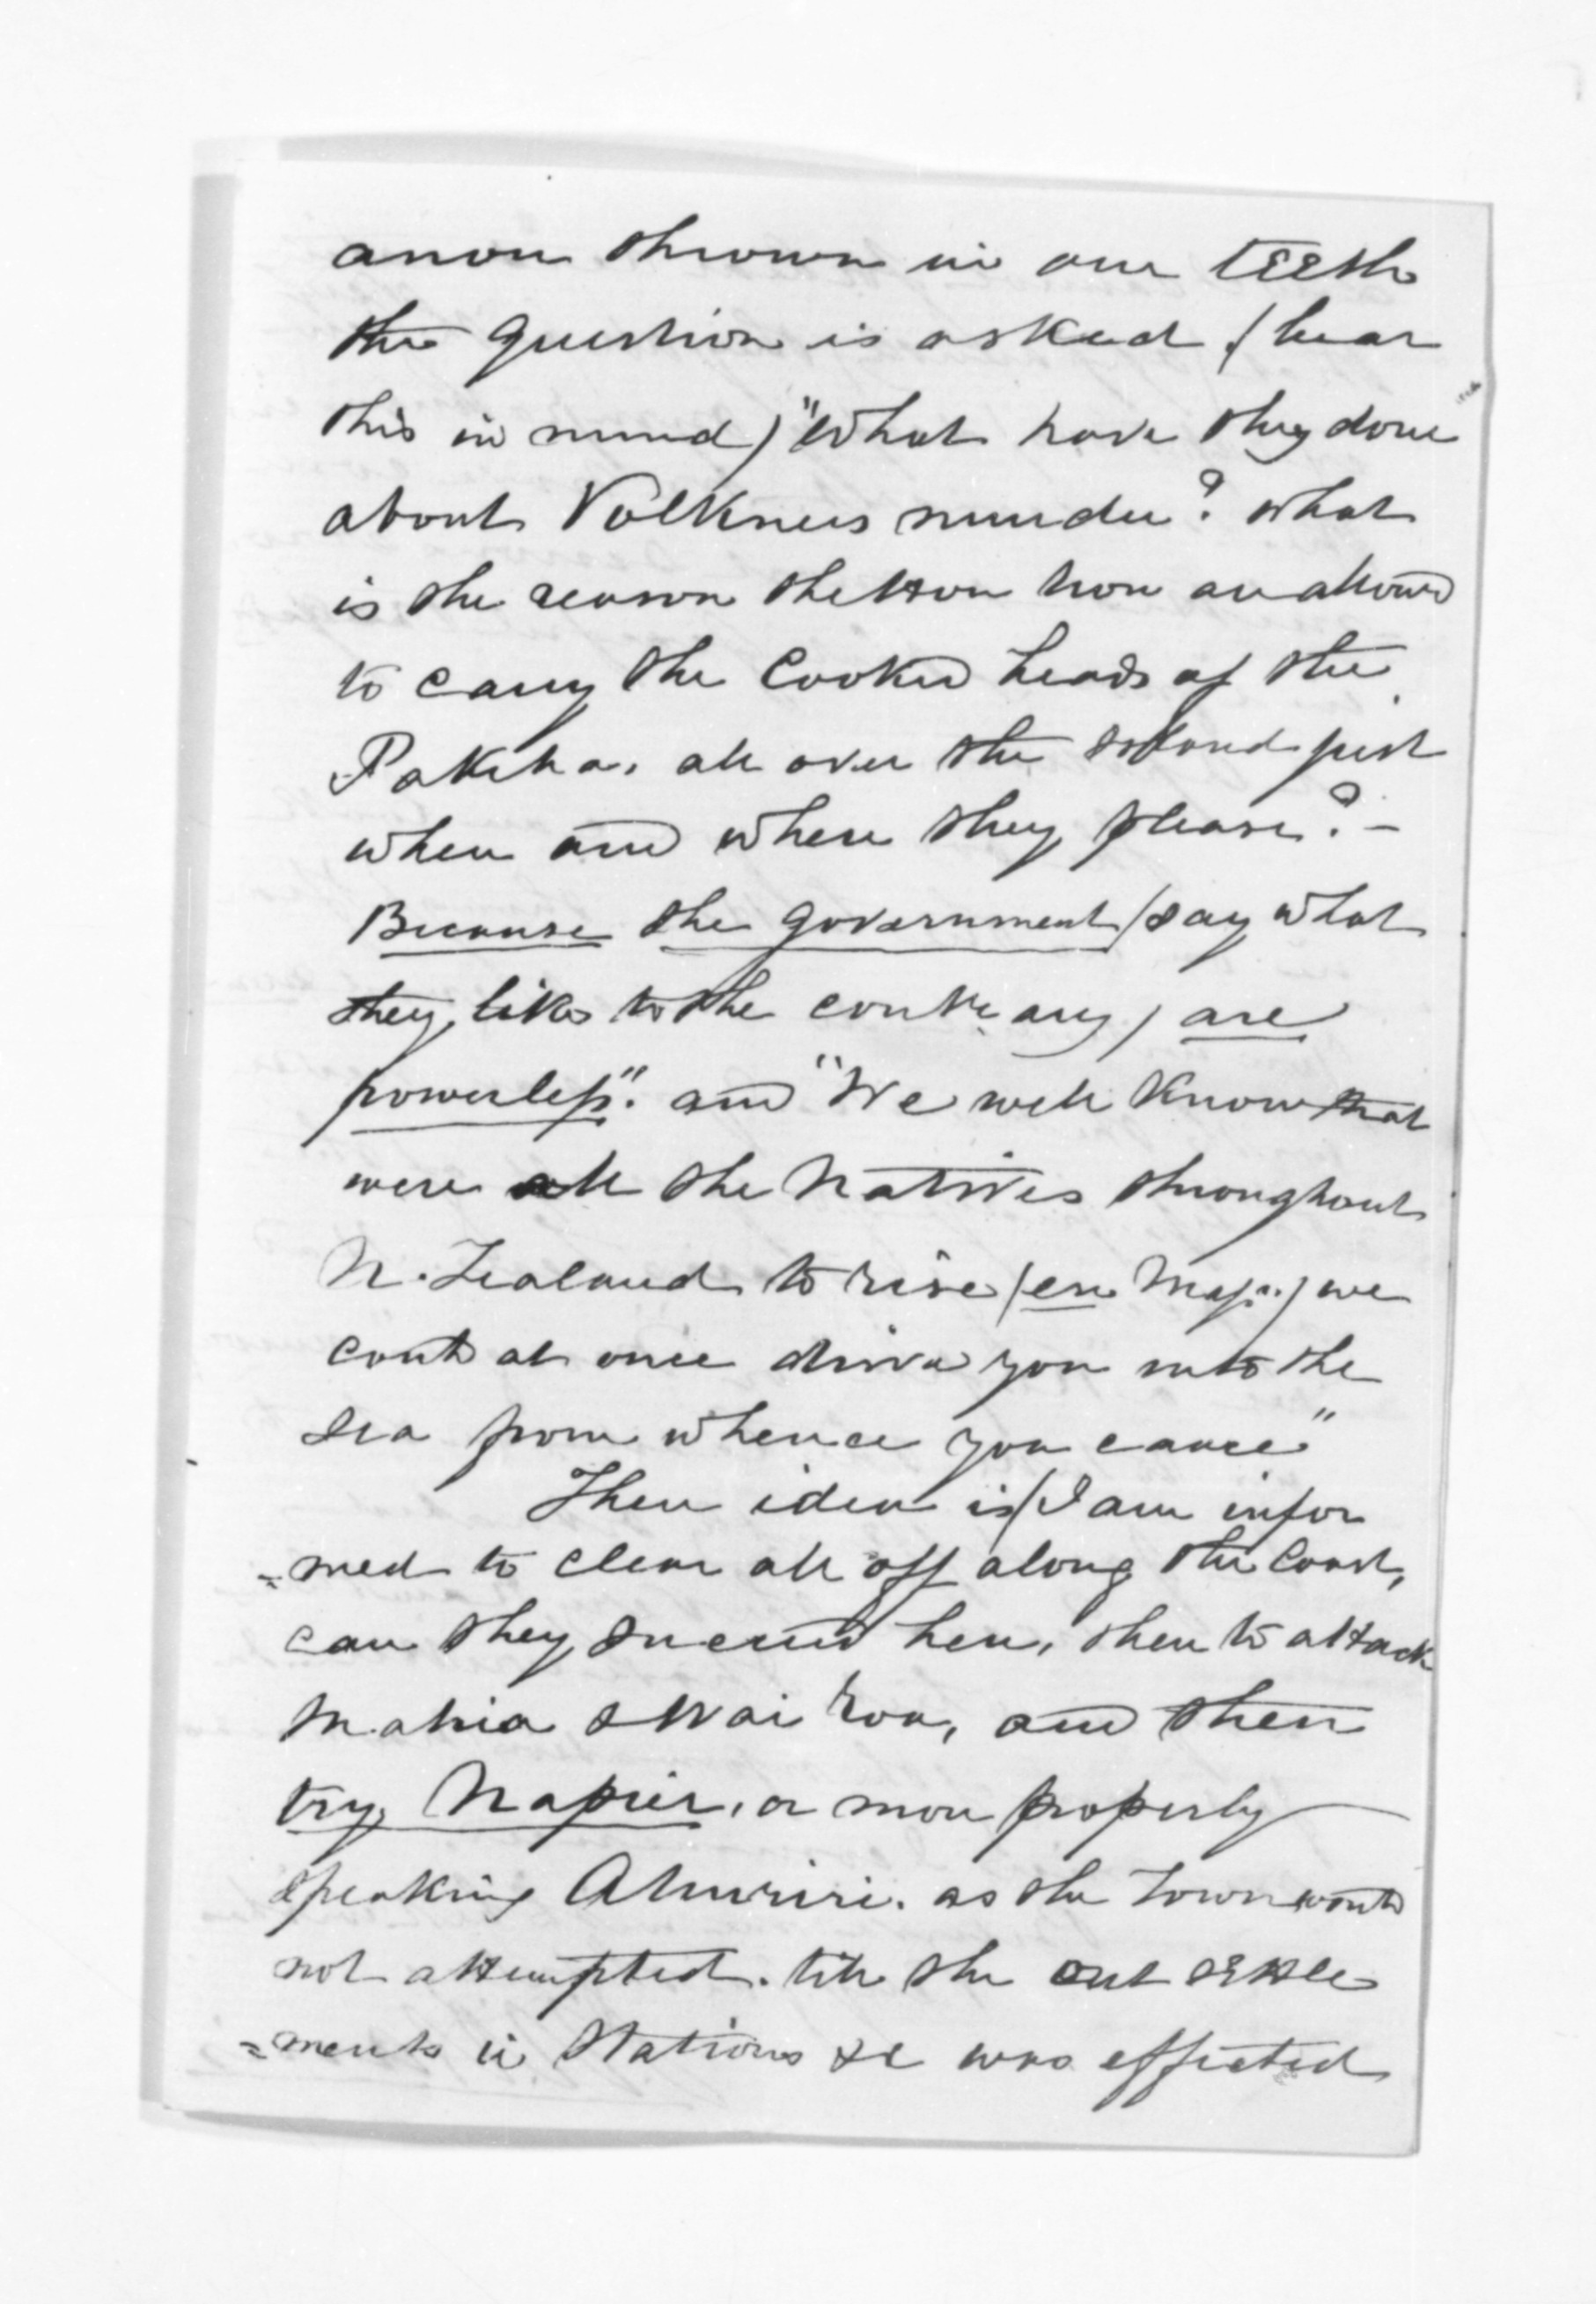 anon thrown in our teeth
the question is asked (bear
this in mind) "What have they done
about Volkners murder? what
is the reason the Hau haus are allowed
to carry the Cooked heads of the
Pakeha. all over the Island just
when and where they please? -
Because the government (say what
they like to the contrary) are
powerless". and "We well know that
were all the Natives throughout
N. Zealand to rise (en Mass) we
could at once drive you into the
sea from whence you came"
Their idea is (I am infor
=med to clear all off along the Coast,
can they succeed here, then to attack
Mahia & Wai roa, and then
try Napier, or more properly
speaking Ahuriri. as the Town would
not attempted. till the out settle
=ments ie Stations &c was effected